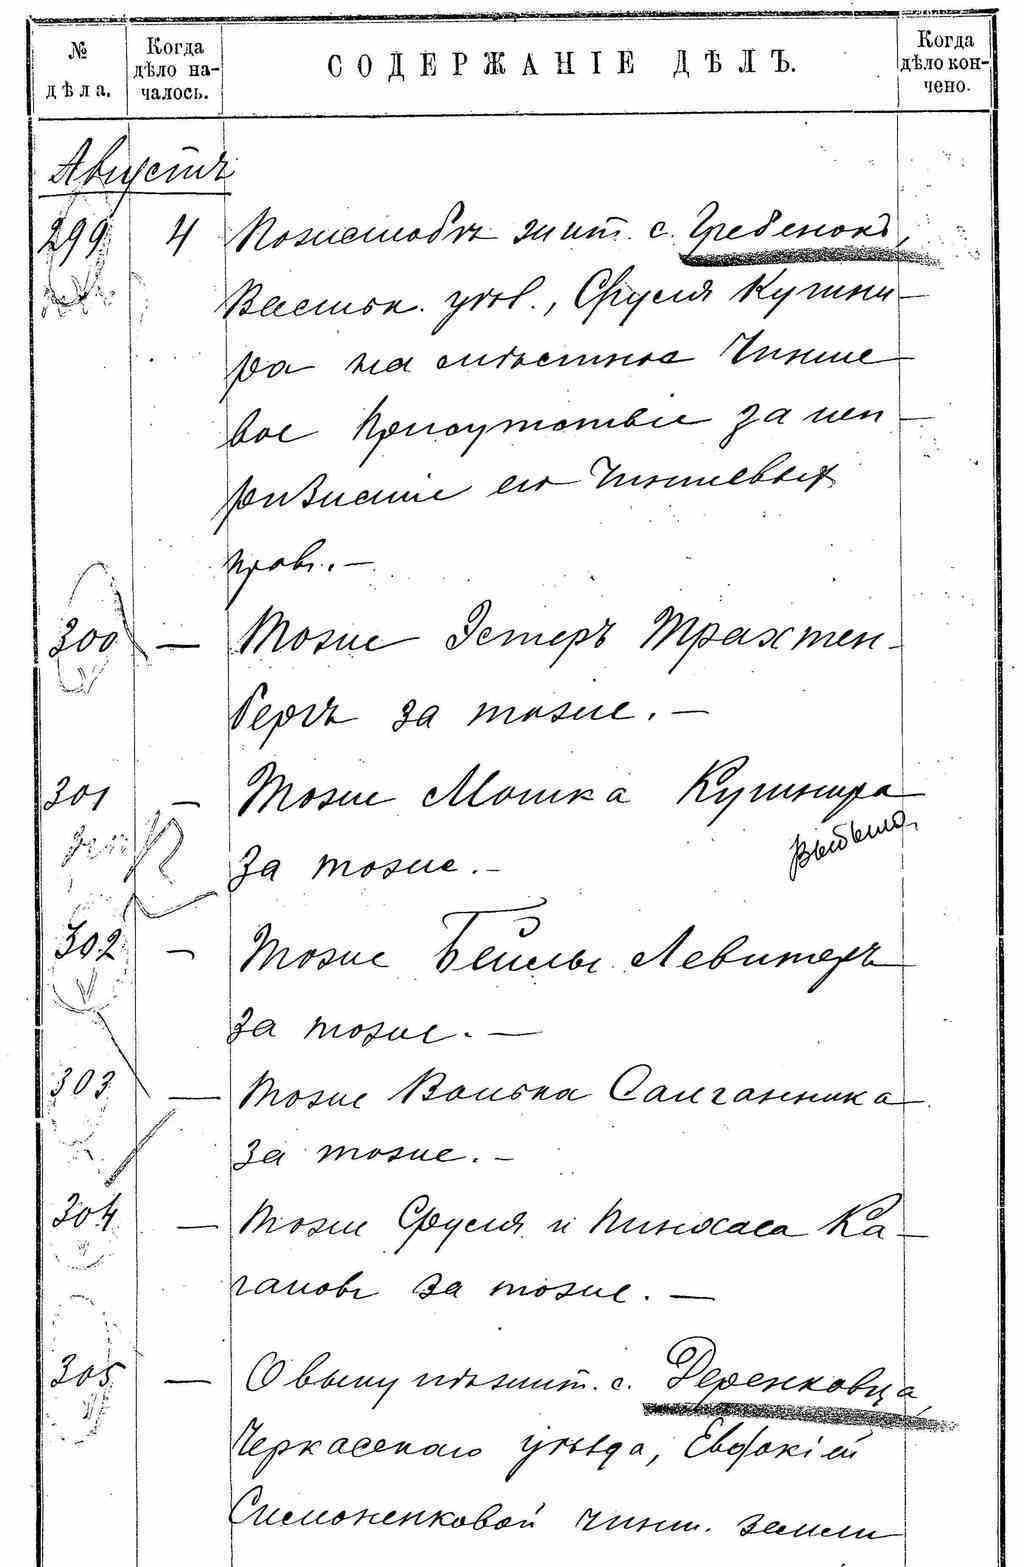 № дѣла.
Когда дѣло на-
чалось.
СОДЕРЖАНІЕ ДѢЛЪ.
Когда дѣло кон-
чено.
Августъ
299 4 По жалобѣ жит. с. Гребенокъ,
Васильк. уѣзд., Сруля Кушни-
ра на мѣстное Чинше-
вое Присутствіе за неп-
ризнаніе его Чиншевыхъ
правъ. —
300 — Тоже Эстеръ Трахтен-
бергъ за тоже. —
301 — Тоже Мошка Кушнира
за тоже. —
выбыло
302 — Тоже Бейлы Левитеръ
за тоже. —
303 — Тоже Волька Салганника
за тоже. —
304 — Тоже Сруля и Пинхаса Ка-
гановъ за тоже. —
305 — О выкупѣ жит. с. Деренковца,
Черкасскаго уѣзда, Евдокіей
Симоненковой чинш. земли